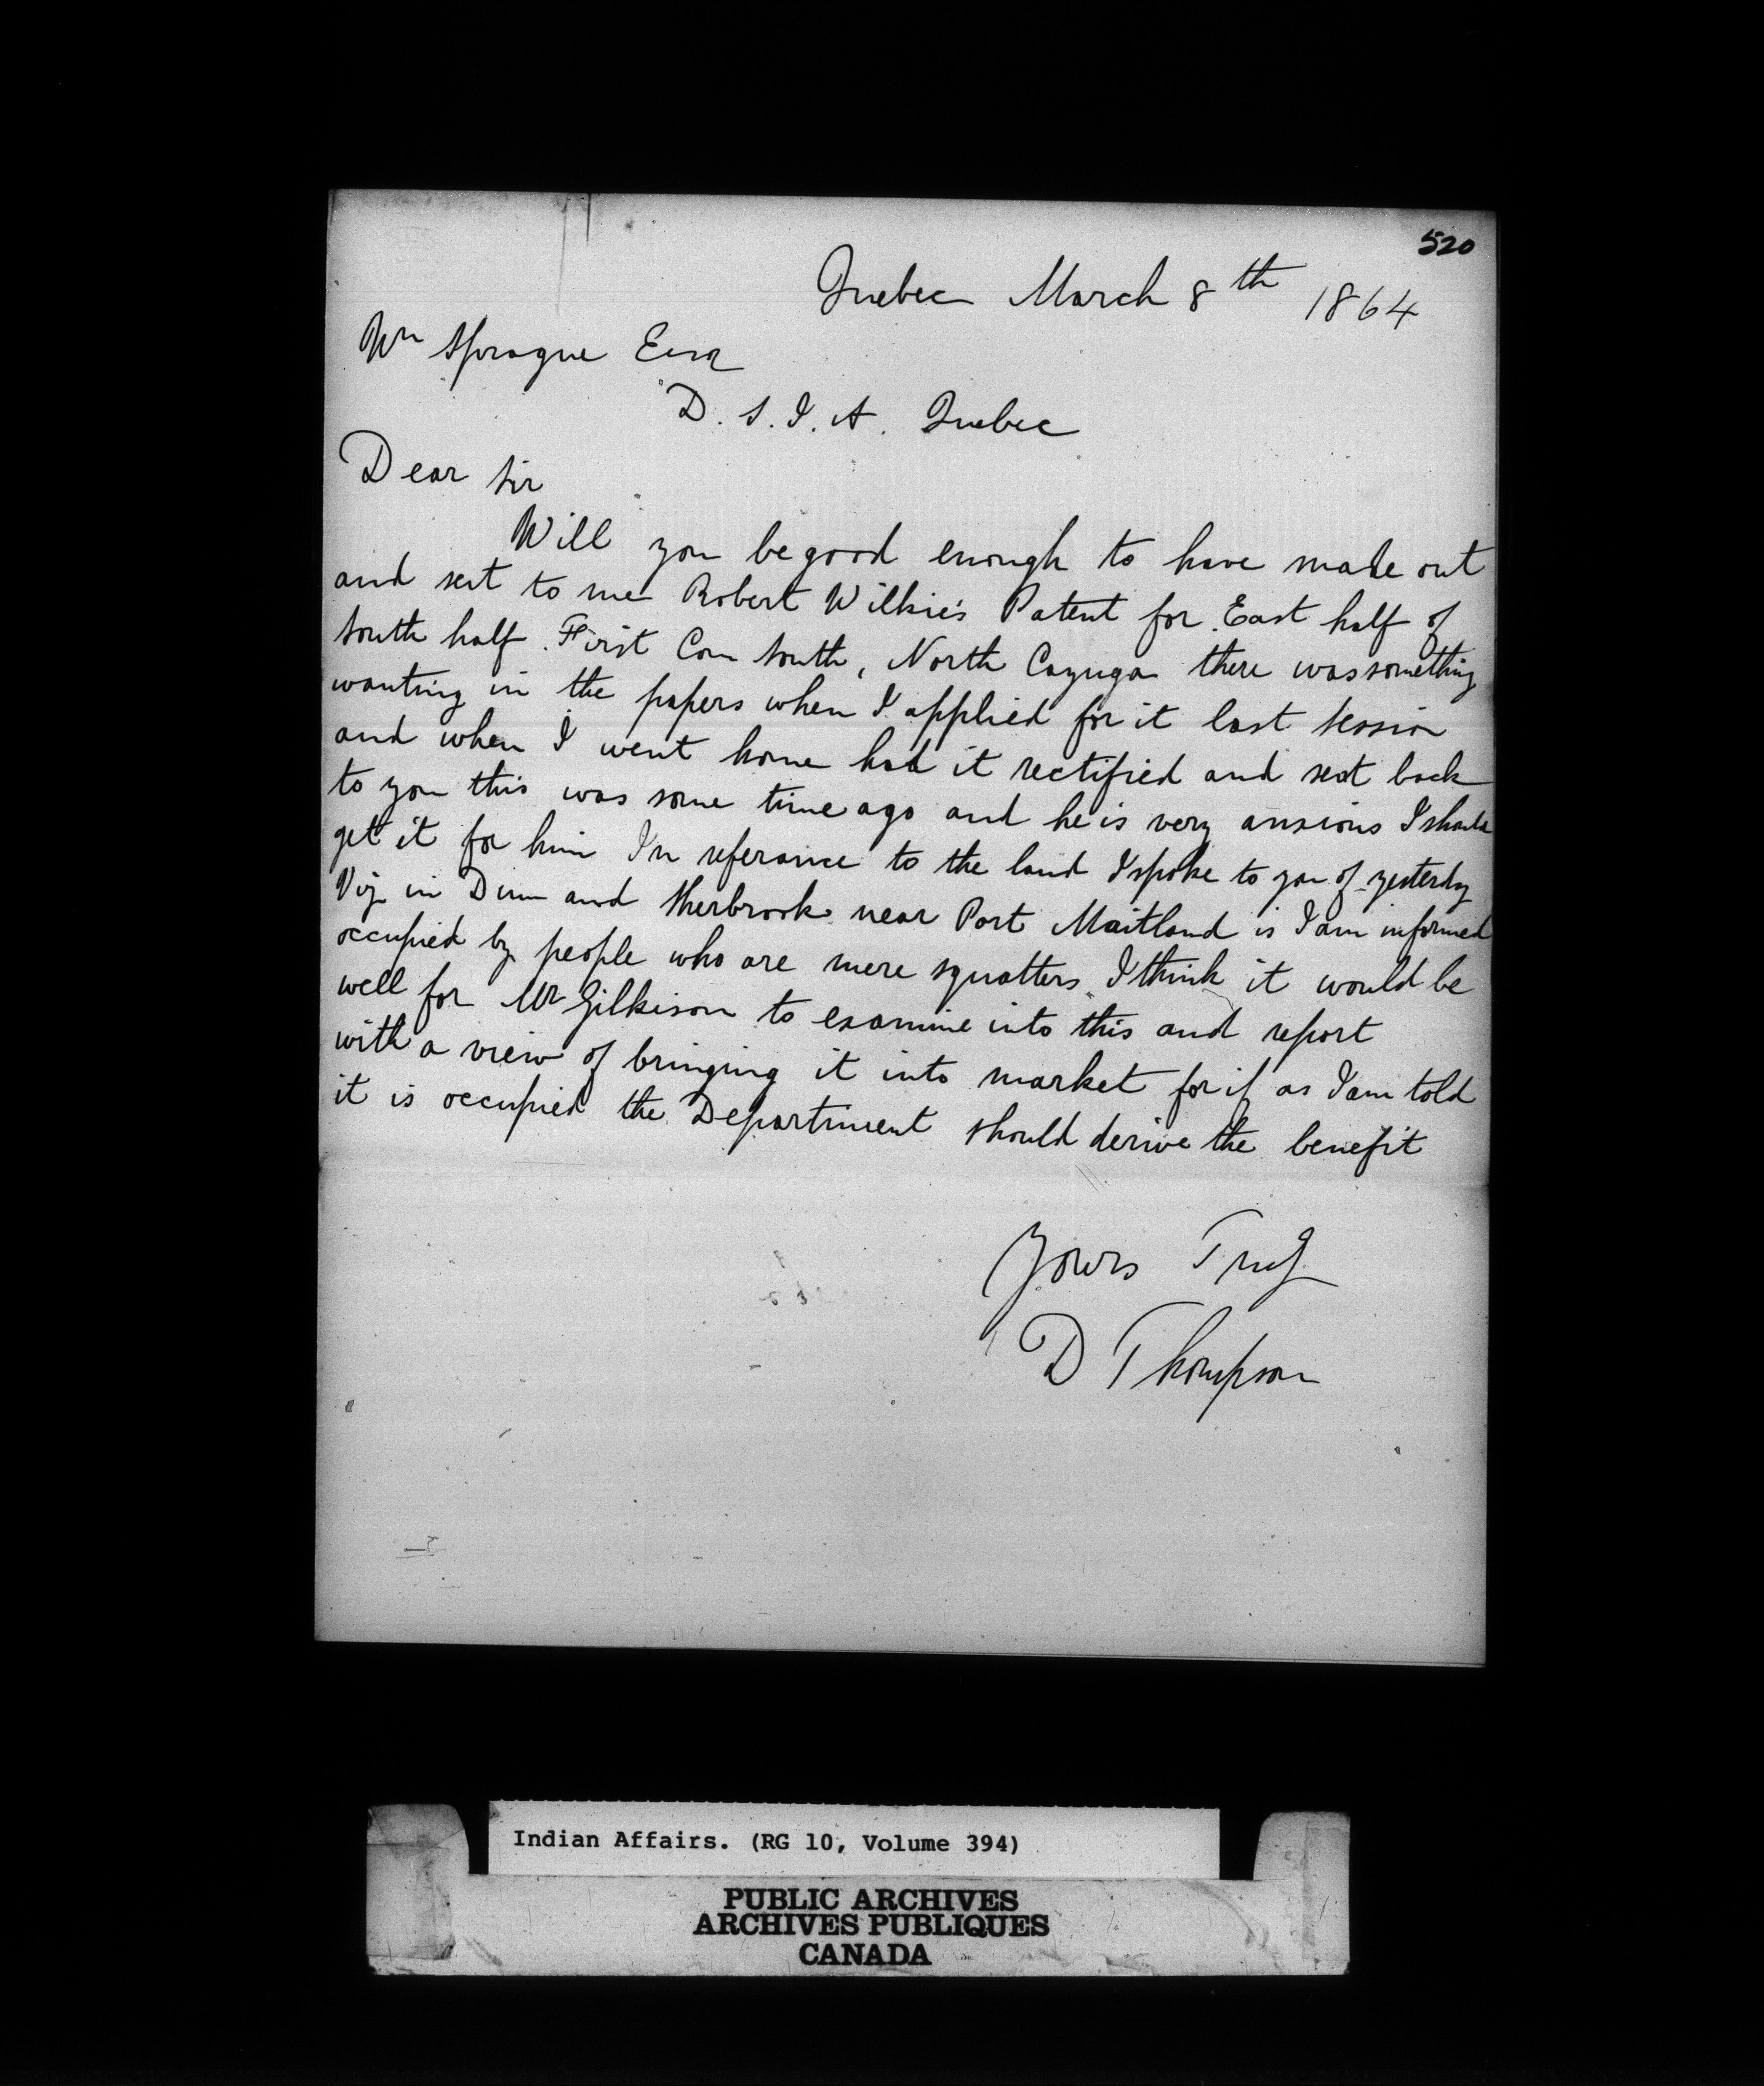 520
Quebec March 8th 1864
Wm Sprague Esq
D. S. I. A. Quebec
Dear Sir
Will you be good enough to have made out
and sent to me Robert Wilkie's Patent for East half of
South half First Con South, North Cayuga there was something
wanting in the papers when I applied for it last session
and when I went home had it rectified and sent back
to you this was some time ago and he is very anxious I should
get it for him In referance to the land I spoke to you of yesterdy
Viz in Dunn and Sherbrook near Port Maitland is I am informed
occupied by people who are mere squatters I think it would be
well for Mr Gilkison to examine into this and report
with a view of bringing it into market for if as I am told
it is occupied the Department should derive the benefit
Yours Truly
D Thompson
Indian Affairs. (RG 10, Volume 394)
PUBLIC ARCHIVES
ARCHIVES PUBLIQUES
CANADA